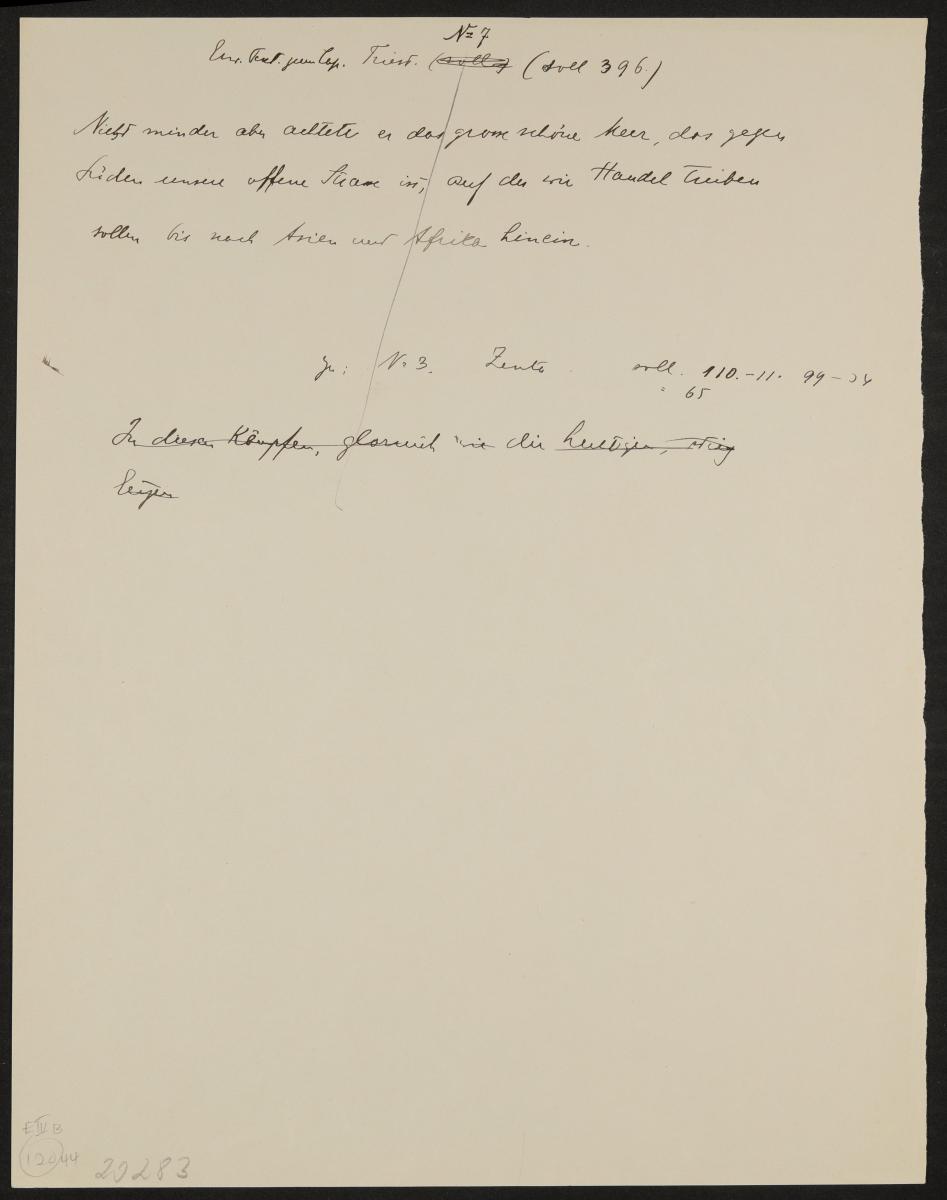 No 7
Erw. Text. zum Cap. Triest. (soll) (soll 396.)
Nicht minder aber achtete er das grosse schöne Meer, das gegen
Süden unsere offene Strasse ist, auf der wir Handel treiben
sollen bis nach Asien und Afrika hinein.
zu: No 3. Zenta soll. 110.-11. 99-
" 65
In diesen Kämpfen, glorreich wie die heutigen,
E IV B
12044
20283